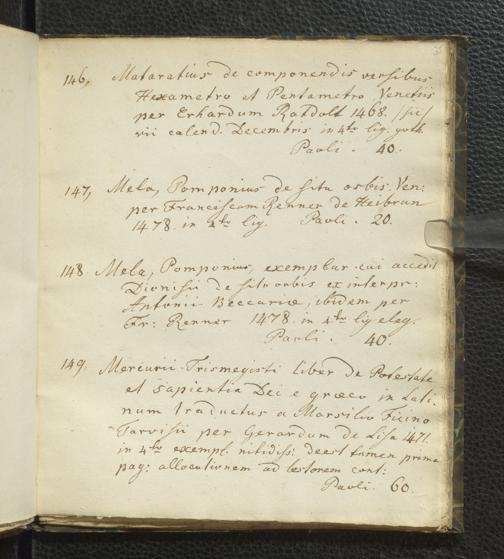 146, Mataratius de componendis versibus
Hexametro et Pentametro Venetiis
per Erhardum Ratdolt 1468. /sic/
vii calend. Decembris in 4to lig. goth
Paoli. 40.
147, Mela, Pomponius de situ orbis. Ven:
per Franciscum Renner de Heibrun
1478. in 4to lig. Paoli. 20.
148. Mela, Pomponius, exemplar cui accedit
Dionisii de situ orbis ex interpr:
Antonii Beccariæ, ibidem per
Fr: Renner 1478. in 4to lig eleg.
Paoli. 40.
149. Mercurii Trismegisti liber de Potestate
et sapientia Dei e græco in Lati-
num traductus a Marsilio Ficino
Tarvisii per Gerardum de Lisa 1471.
in 4to exempl. nitidiss: deest tamen prima
pag: allocutionem ad lectorem cont:
Paoli. 60.